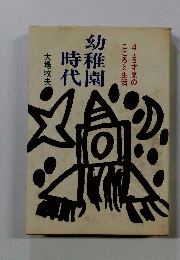 4・5才児の
こころと生活
幼稚園
時代
大場牧夫